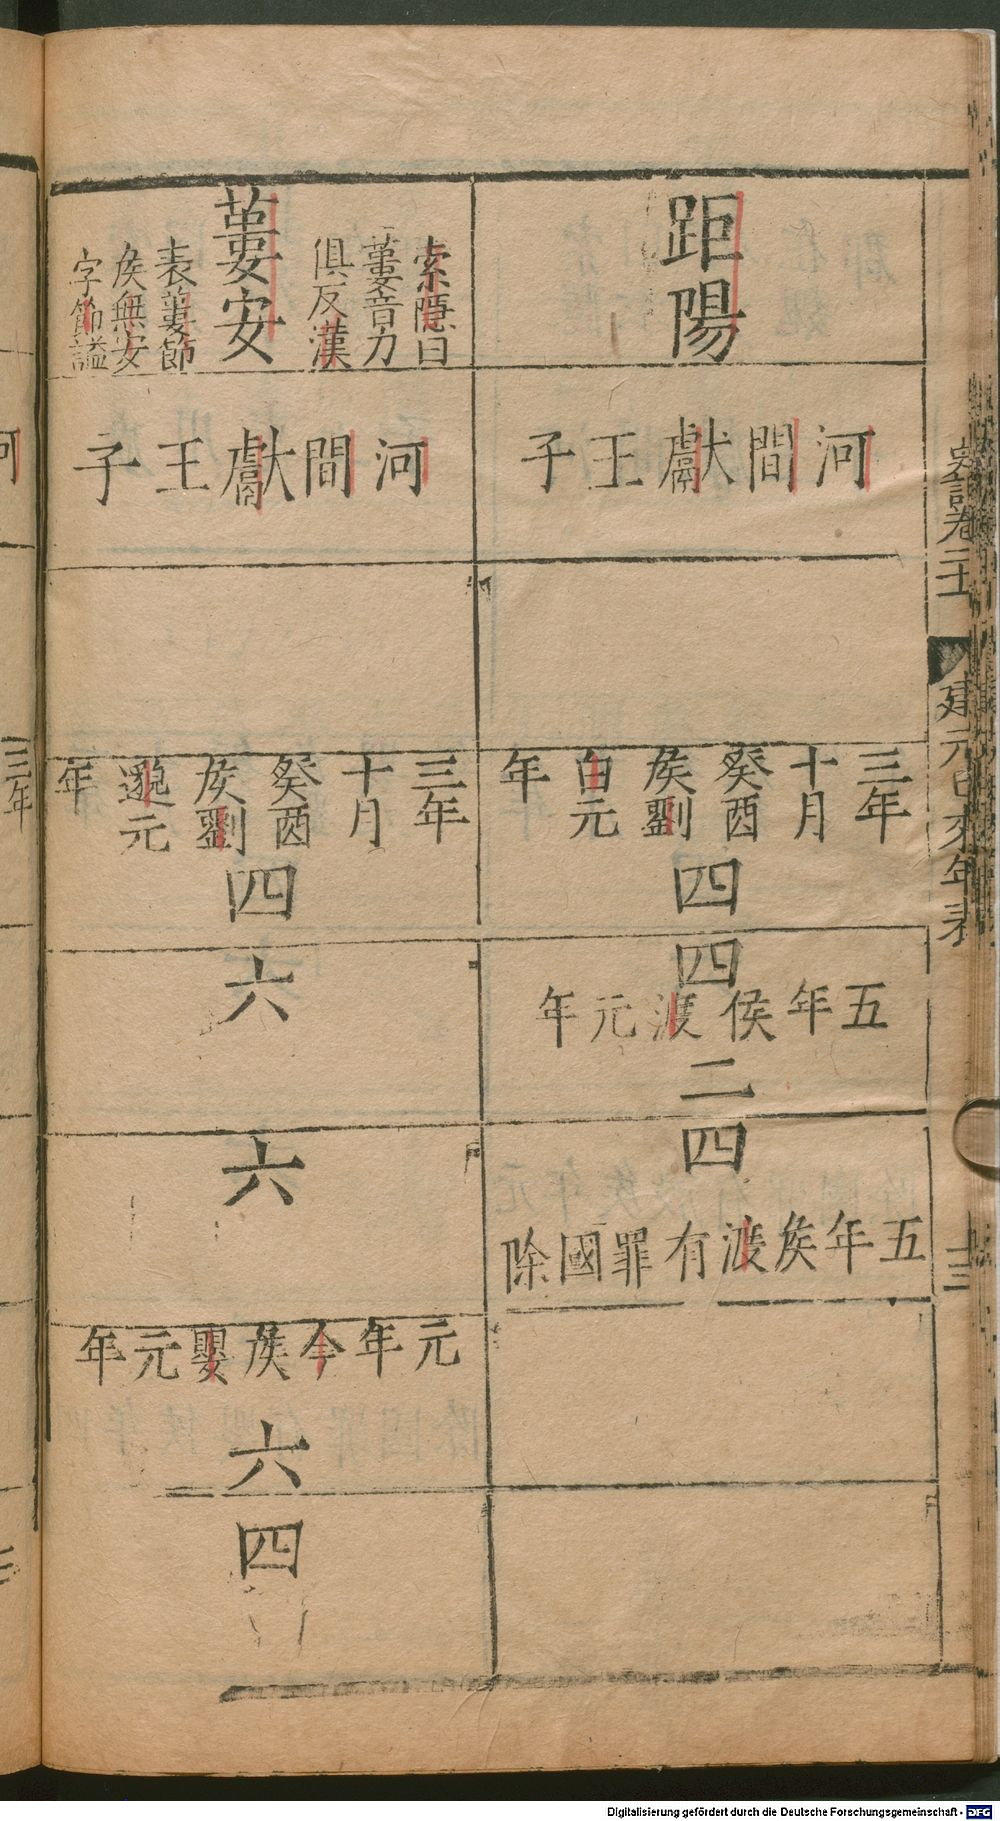 距陽
河間獻王子
三年
十月
癸酉
矦劉
白元
年
四
四
五年侯渡元年
二
四
五年矦渡有罪國除
蔞安
索隱曰
蔞音力
俱反漢
表蔞節
矦無安
字節謚
河間獻王子
三年
十月
癸酉
矦劉
邈元
年
四
六
六
元年今矦嬰元年
六
四
建元已來年表
河
三年
Digitalisierung gefördert durch die Deutsche Forschungsgemeinschaft - DFG